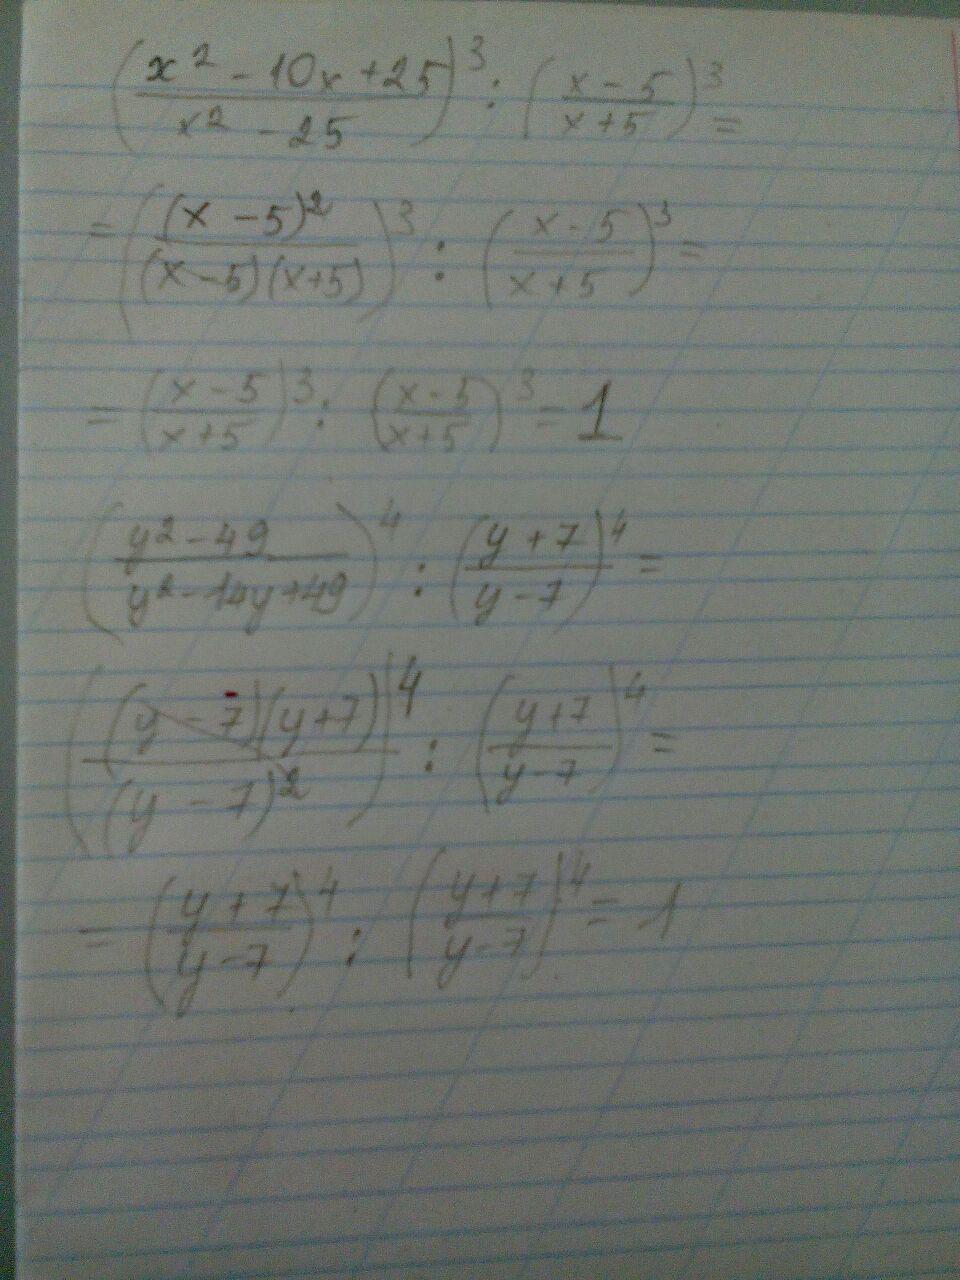 (x² - 10x + 25 / x² - 25)³ : (x - 5 / x + 5)³ =
= ((x - 5)² / (x - 5)(x + 5))³ : (x - 5 / x + 5)³ =
= (x - 5 / x + 5)³ : (x - 5 / x + 5)³ = 1
(y² - 49 / y² - 14y + 49)⁴ : (y + 7 / y - 7)⁴ =
((y - 7)(y + 7) / (y - 7)²)⁴ : (y + 7 / y - 7)⁴ =
= (y + 7 / y - 7)⁴ : (y + 7 / y - 7)⁴ = 1